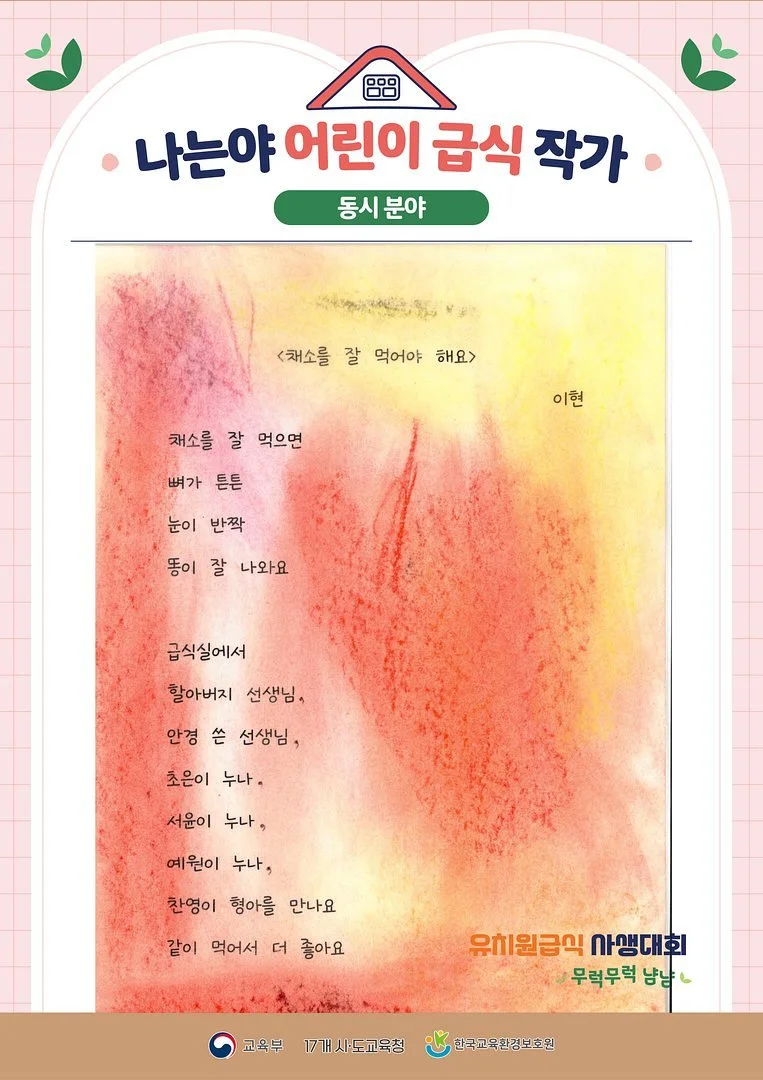 나는야 어린이 급식 작가
동시 분야
<채소를 잘 먹어야 해요>
이현
채소를 잘 먹으면
뼈가 튼튼
눈이 반짝
똥이 잘 나와요
급식실에서
할아버지 선생님,
안경 쓴 선생님,
초은이 누나,
서윤이 누나,
예원이 누나,
찬영이 형아를 만나요
같이 먹어서 더 좋아요
유치원급식 사생대회
무럭무럭 냠냠
교육부 17개 시·도교육청 한국교육환경보호원